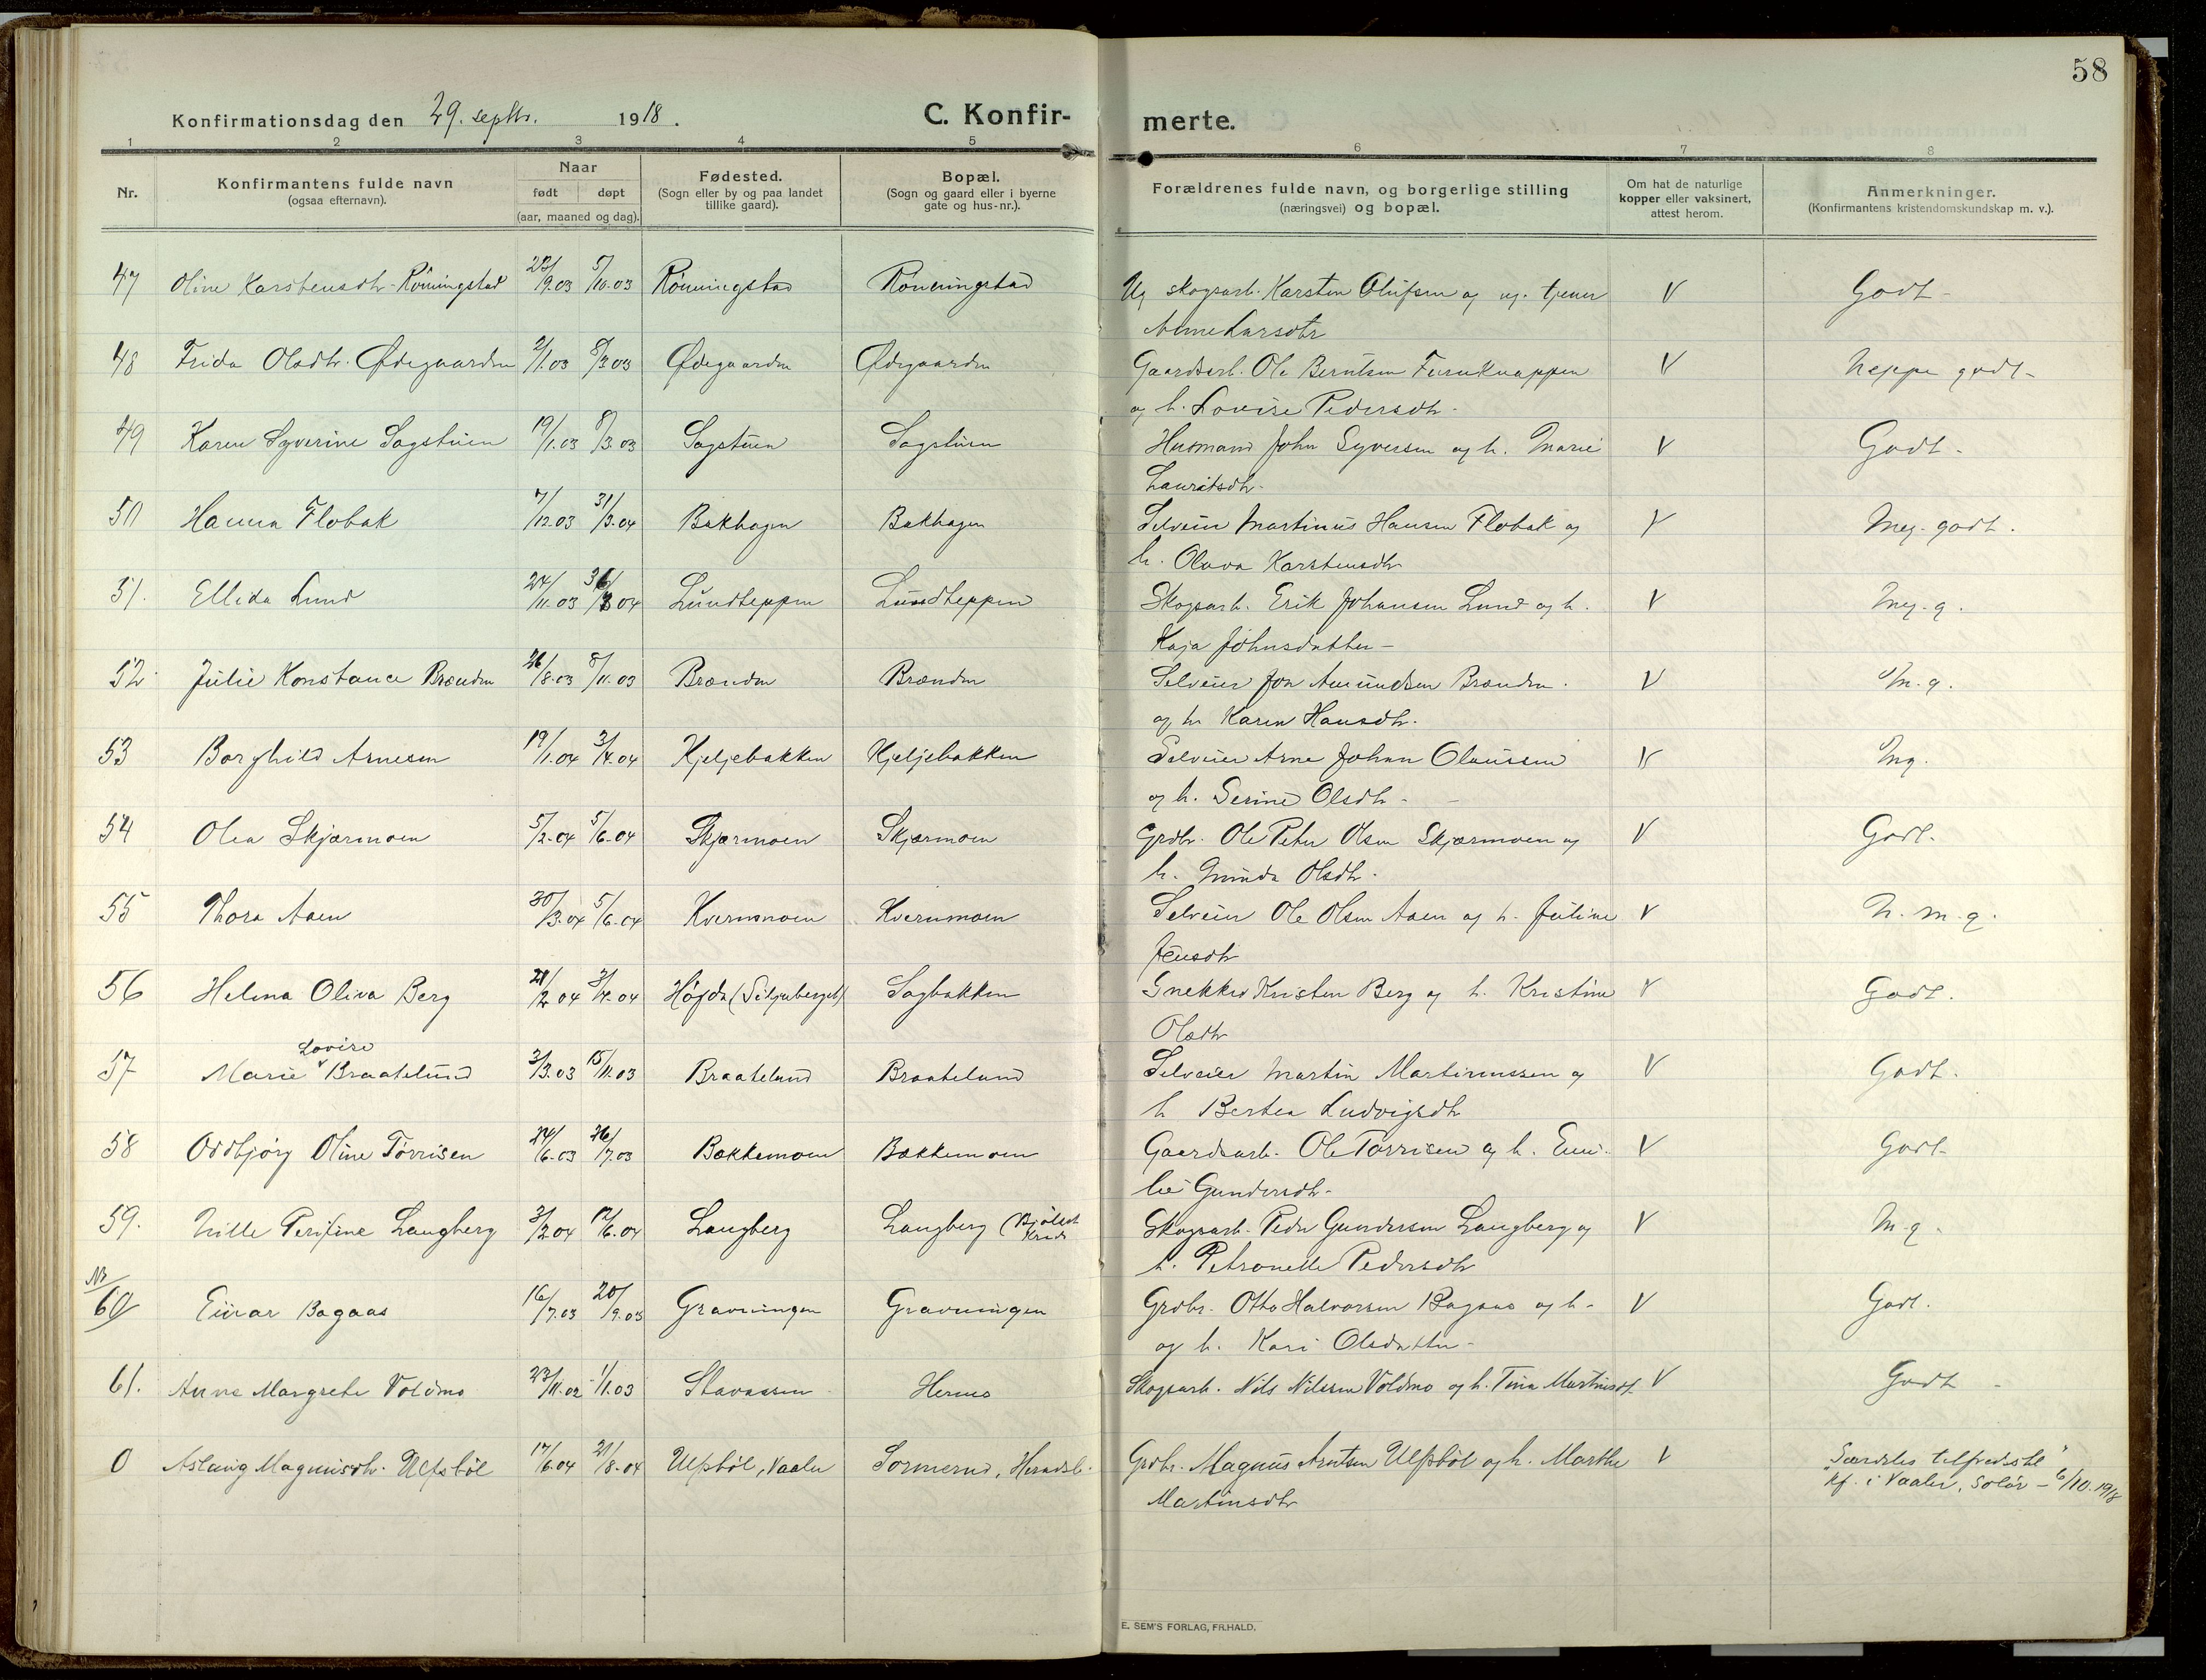 58
Konfirmationsdag den 29. septbr. 1918.
C. Konfir-merte.
1 2 3 4 5 6 7 8
Nr.
Konfirmantens fulde navn
(ogsaa efternavn).
Naar
født døpt
(aar, maaned og dag).
Fødested.
(Sogn eller by og paa landet
tillike gaard).
Bopæl.
(Sogn og gaard eller i byerne
gate og hus-nr.).
Forældrenes fulde navn, og borgerlige stilling
(næringsvei) og bopæl.
Om hat de naturlige
kopper eller vaksinert,
attest herom.
Anmerkninger.
(Konfirmantens kristendomskundskap m. v.).
47 Oline Karstensdtr. Rönningstad /9.03 5/10.03 Rönningstad Rönningstad Ug skogsarb. Karsten Olufsen og ug. tjener V Godt -
Anne Larsdtr
48 Frida Olsdtr. Ødegaarden 2/1.03 8/3 03 Ødegaarden Ødegaarden Gaardsarb. Ole Berntsen Furuknappen V Neppe godt -
og h. Lovise Pedersdtr -
49 Karen Syverine Sagstuen 19/1.03 8/3.03 Sagstuen Sagstuen Husmand John Syversen og h. Marie V Godt -
Lauritsdtr -
50 Hanna Flobak 7/12.03 31/3.04 Bakhagen Bakhagen Selveier Martinus Hansen Flobak og V Meg. godt.
h. Olava Karstensdtr
51. Ellida Lund 24/11.03 /3 04 Lundteppen Lundteppen Skogsarb. Erik Johansen Lund og h. V Meg. g.
Kaja Johnsdatter -
52 Julie Konstance Brænden 26/8.03 8/11.03 Brænden Brænden Selveier Jon Amundsen Brænden. V M. g.
og h. Karen Hansdtr.
53 Borghild Arnesen 19/1.04 3/4.04 Kjeljebakken Kjeljebakken Selveier Arne Johan Olaussen V Mg.
og h. Serine Olsdtr -
54 Olea Skjærmoen 5/2.04 5/6.04 Skjærmoen Skjærmoen Grdbr. Ole Peter Olsen Skjærmoen og V Godt.
h. Gunda Olsdtr.
55 Thora Aaen 30/3.04 5/6.04 Kvernmoen Kvernmoen Selveier Ole Olsen Aaen og h. Juline V N. m. g.
Jensdtr
56 Helena Oliva Berg /2 04 3/4.04 Höjda (Siljuberget) Sagbakken Snekker Kristen Berg og h. Kristine V Godt.
Olsdtr
57 Marie Lovise Braatelund 3/3.03 15/11.03 Braatelund Braatelund Selveier Martin Martinussen og V Godt.
h Bertea Ludvigsdtr
58 Oddbjørg Oline Törrisen 24/6.03 26/7.03 Bakkemoen Bakkemoen Gaardsarb. Ole Törrisen og h. Emi- V Godt.
lie Gundersdtr.
59. Nille Perifine Langberg 3/2 04 12/6.04 Langberg Langberg Skogsarb. Peder Gundersen Langberg og V M. g.
h. Petronelle Pedersdtr
Nr 60 Einar Bagaas 16/7.03 20/9.03 Gravningen Gravningen Grdbr. Otto Halvorsen Bagaas og h. V Godt.
og h. Kari Olsdatter -
61. Anna Margrete Voldmo 23/11.02 1/1.03 Stavaasen Hermo Skogsarb. Nils Nilssen Voldmo og h. Tina Martinsdt. V Godt
0 Aslaug Magnusdtr. Ulfsböl 17/6.04 21/8.04 Ulfsböl, Vaaler Sörmerud, Heradsb. Grdbr. Magnus Arntsen Ulfsböl og h. Marthe V Særdeles tilfredsst.
Martinsdtr Kf. i Vaaler, Solör - 6/10.1918
E. SEM'S FORLAG, FR.HALD.